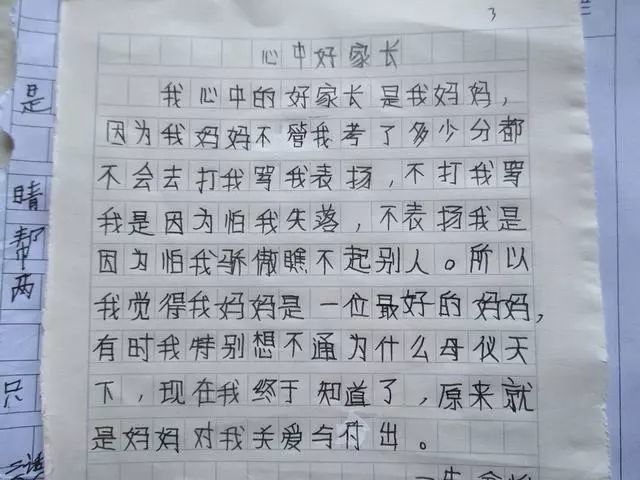 3
心中好家长
我心中的好家长是我妈妈，
因为我妈妈不管我考了多少分都
不会去打我骂我表扬，不打我骂
我是因为怕我失落，不表扬我是
因为怕我骄傲瞧不起别人。所以
我觉得我妈妈是一位最好的妈妈，
有时我特别想不通为什么母仪天
下，现在我终于知道了，原来就
是妈妈对我关爱与付出。
是
晴
帮
两
只